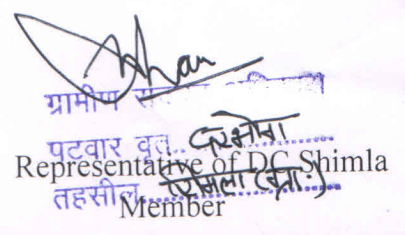 ग्रामीण
पटवार वृत..
Representative of DC Shimla
तहसील शिमला (ग्रा.)
Member